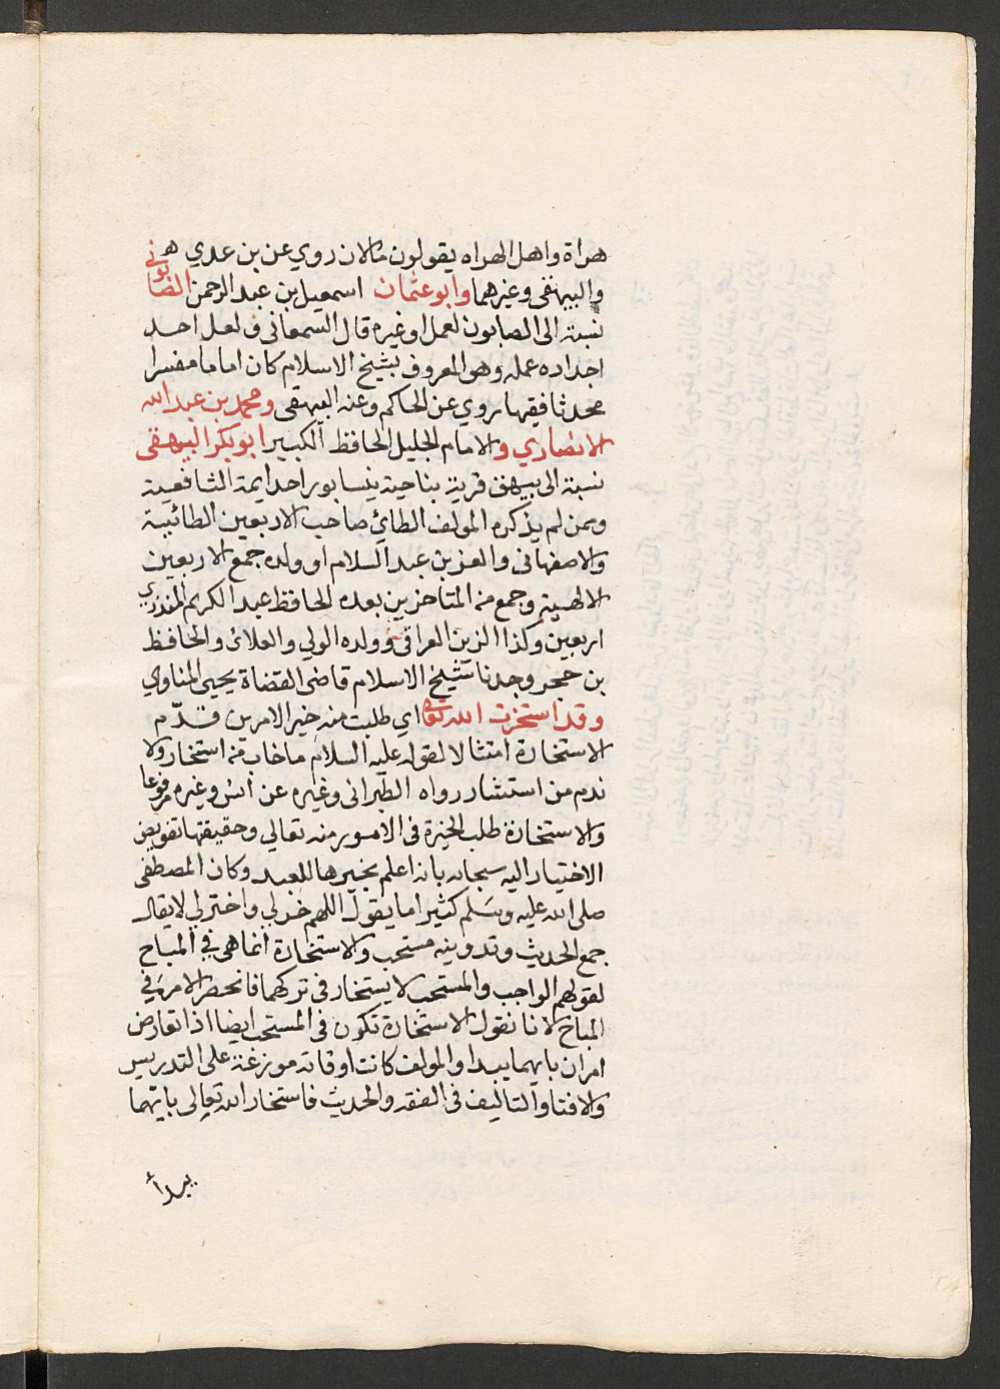 هراة واهل الهراه يقولون مالان روي عن بن عدي هو
والبيهقى وغيرهما وابو عثمان اسمعيل بن عبد الرحمن الصابونى
نسبة الى الصابون لعمل او غيره قال السمعانى ف لعل احد
اجداده عمله وهو المعروف بشيخ الاسلام كان اماما مفسرا
محدثا فقيها روي عن الحاكم وعنه البيهقى ومحمد بن عبد الله
الانصاري والامام الجليل الحافظ الكبير ابو بكر البيهقى
نسبة الى بيهق قرية بناحية نيسابور احد ايمة الشافعية
وممن لم يذكره المولف الطائ صاحب الاربعين الطائية
والاصفهانى والعز بن عبد السلام او ولده جمع الاربعين
الالهية وجمع من المتاخرين بعده الحافظ عبد الكريم المنذري
اربعين وكذا الزين العراقى وولده الولي والعلائ والحافظ
بن حجر وجدنا شيخ الاسلام قاضى القضاة يحيى المناوي
وقد استخرت الله تعالى اي طلبت منه خير الامرين قدّم
الاستخارة امتثالا لقوله عليه السلام ما خاب من استخار ولا
ندم من استشار رواه الطبرانى وغيره عن انس وغيره مرفوعا
والاستخارة طلب الخيرة فى الامور منه تعالي وحقيقتها تفويض
الاختيار اليه سبحانه بانه اعلم بخيرها للعبد وكان المصطفى
صلى الله عليه وسَلم كثيرا ما يقول اللهم خر لي واختر لي لا يقال
جمع الحديث وتدوينه مستحب والاستخارة انما هي في المباح
لقولهم الواجب والمستحب لا يستخار فى تركهما فانحصر الامر في
المباح لانا نقول الاستخارة تكون فى المستحب ايضا اذا تعارض
امران بايهما يبدا والمولف كانت اوقاته موزعة على التدريس
والافتا والتاليف فى الفقه والحديث فاستخار الله تعالى بايّهما
يبدأ